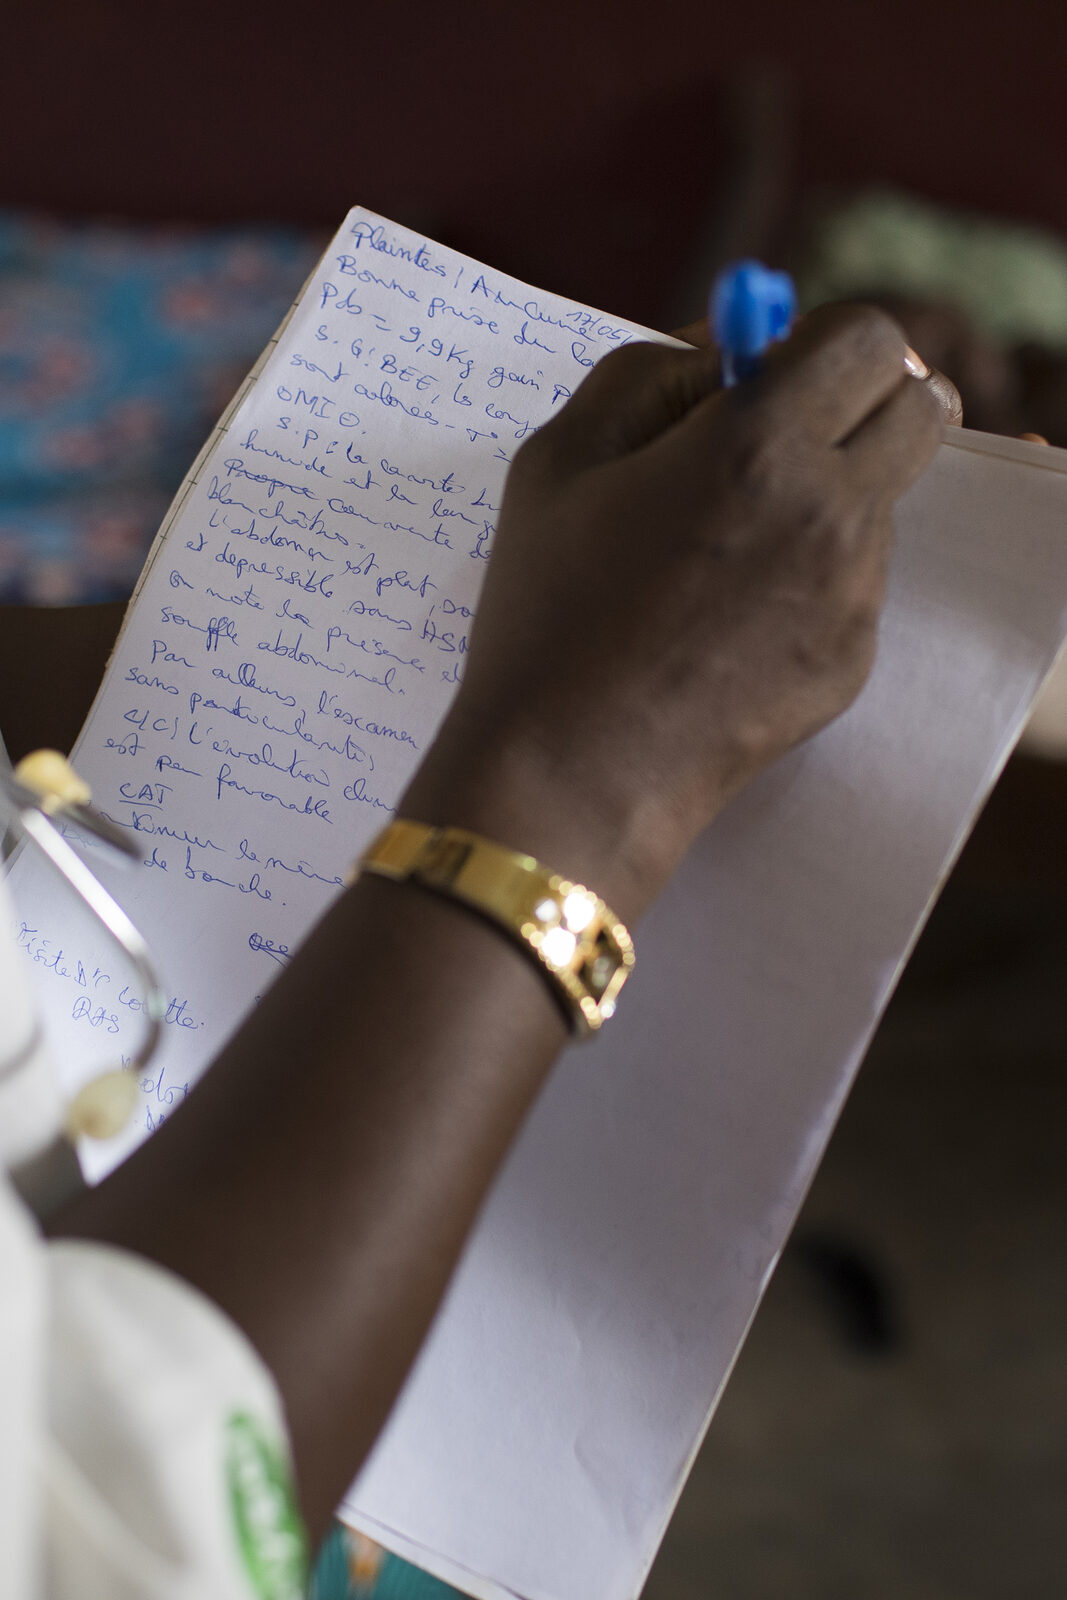 Plaintes / Aucune
17/05/
Bonne prise du la
Pds = 9,9Kg gain p
S. G: BEE, ls conj
sont colorés - T° =
OMI ⊖.
S.P: la cavité bu
humide et la lang
Propre couverte de
blanchâtres.
L'abdomen est plat, so
et depressible sans HSM
on note la présence d
souffle abdominal.
Par ailleurs, l'examen
sans particularités
C/C) L'évolution clini
est peu favorable
CAT
le même
de bouche.
Visite Dr Colette.
RAS